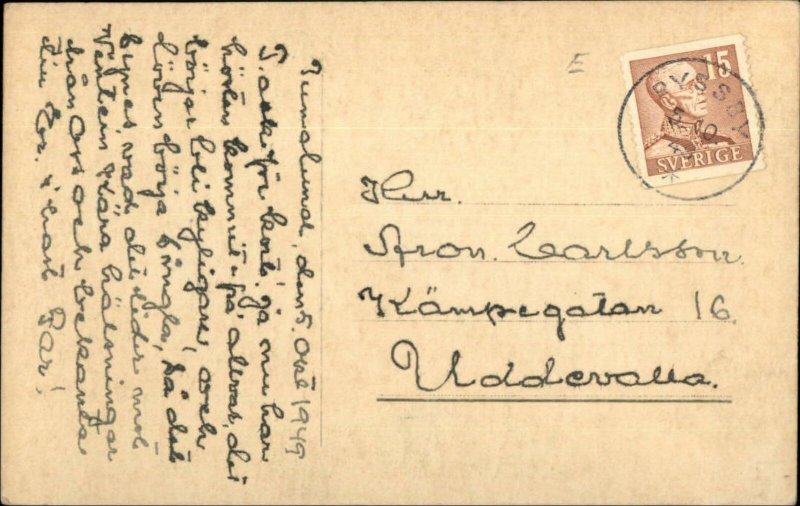 Tunalund, den 5. Okt 1949
Tack för kort. ja nu har
hösten kommit på allvar, de
börjar bli kyligare, och
löven börja singla, så det
synes vad det lider mot
Vintern Kära hälsningar
från Oss och bekanta
din Er.
E
15
RYSSBY
SVERIGE
Herr.
Aron. Carlsson.
Kämpegatan 16.
Uddevalla.